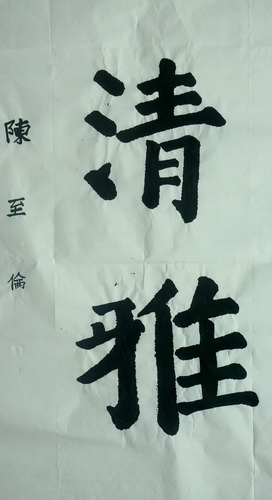 清雅
陳至倫